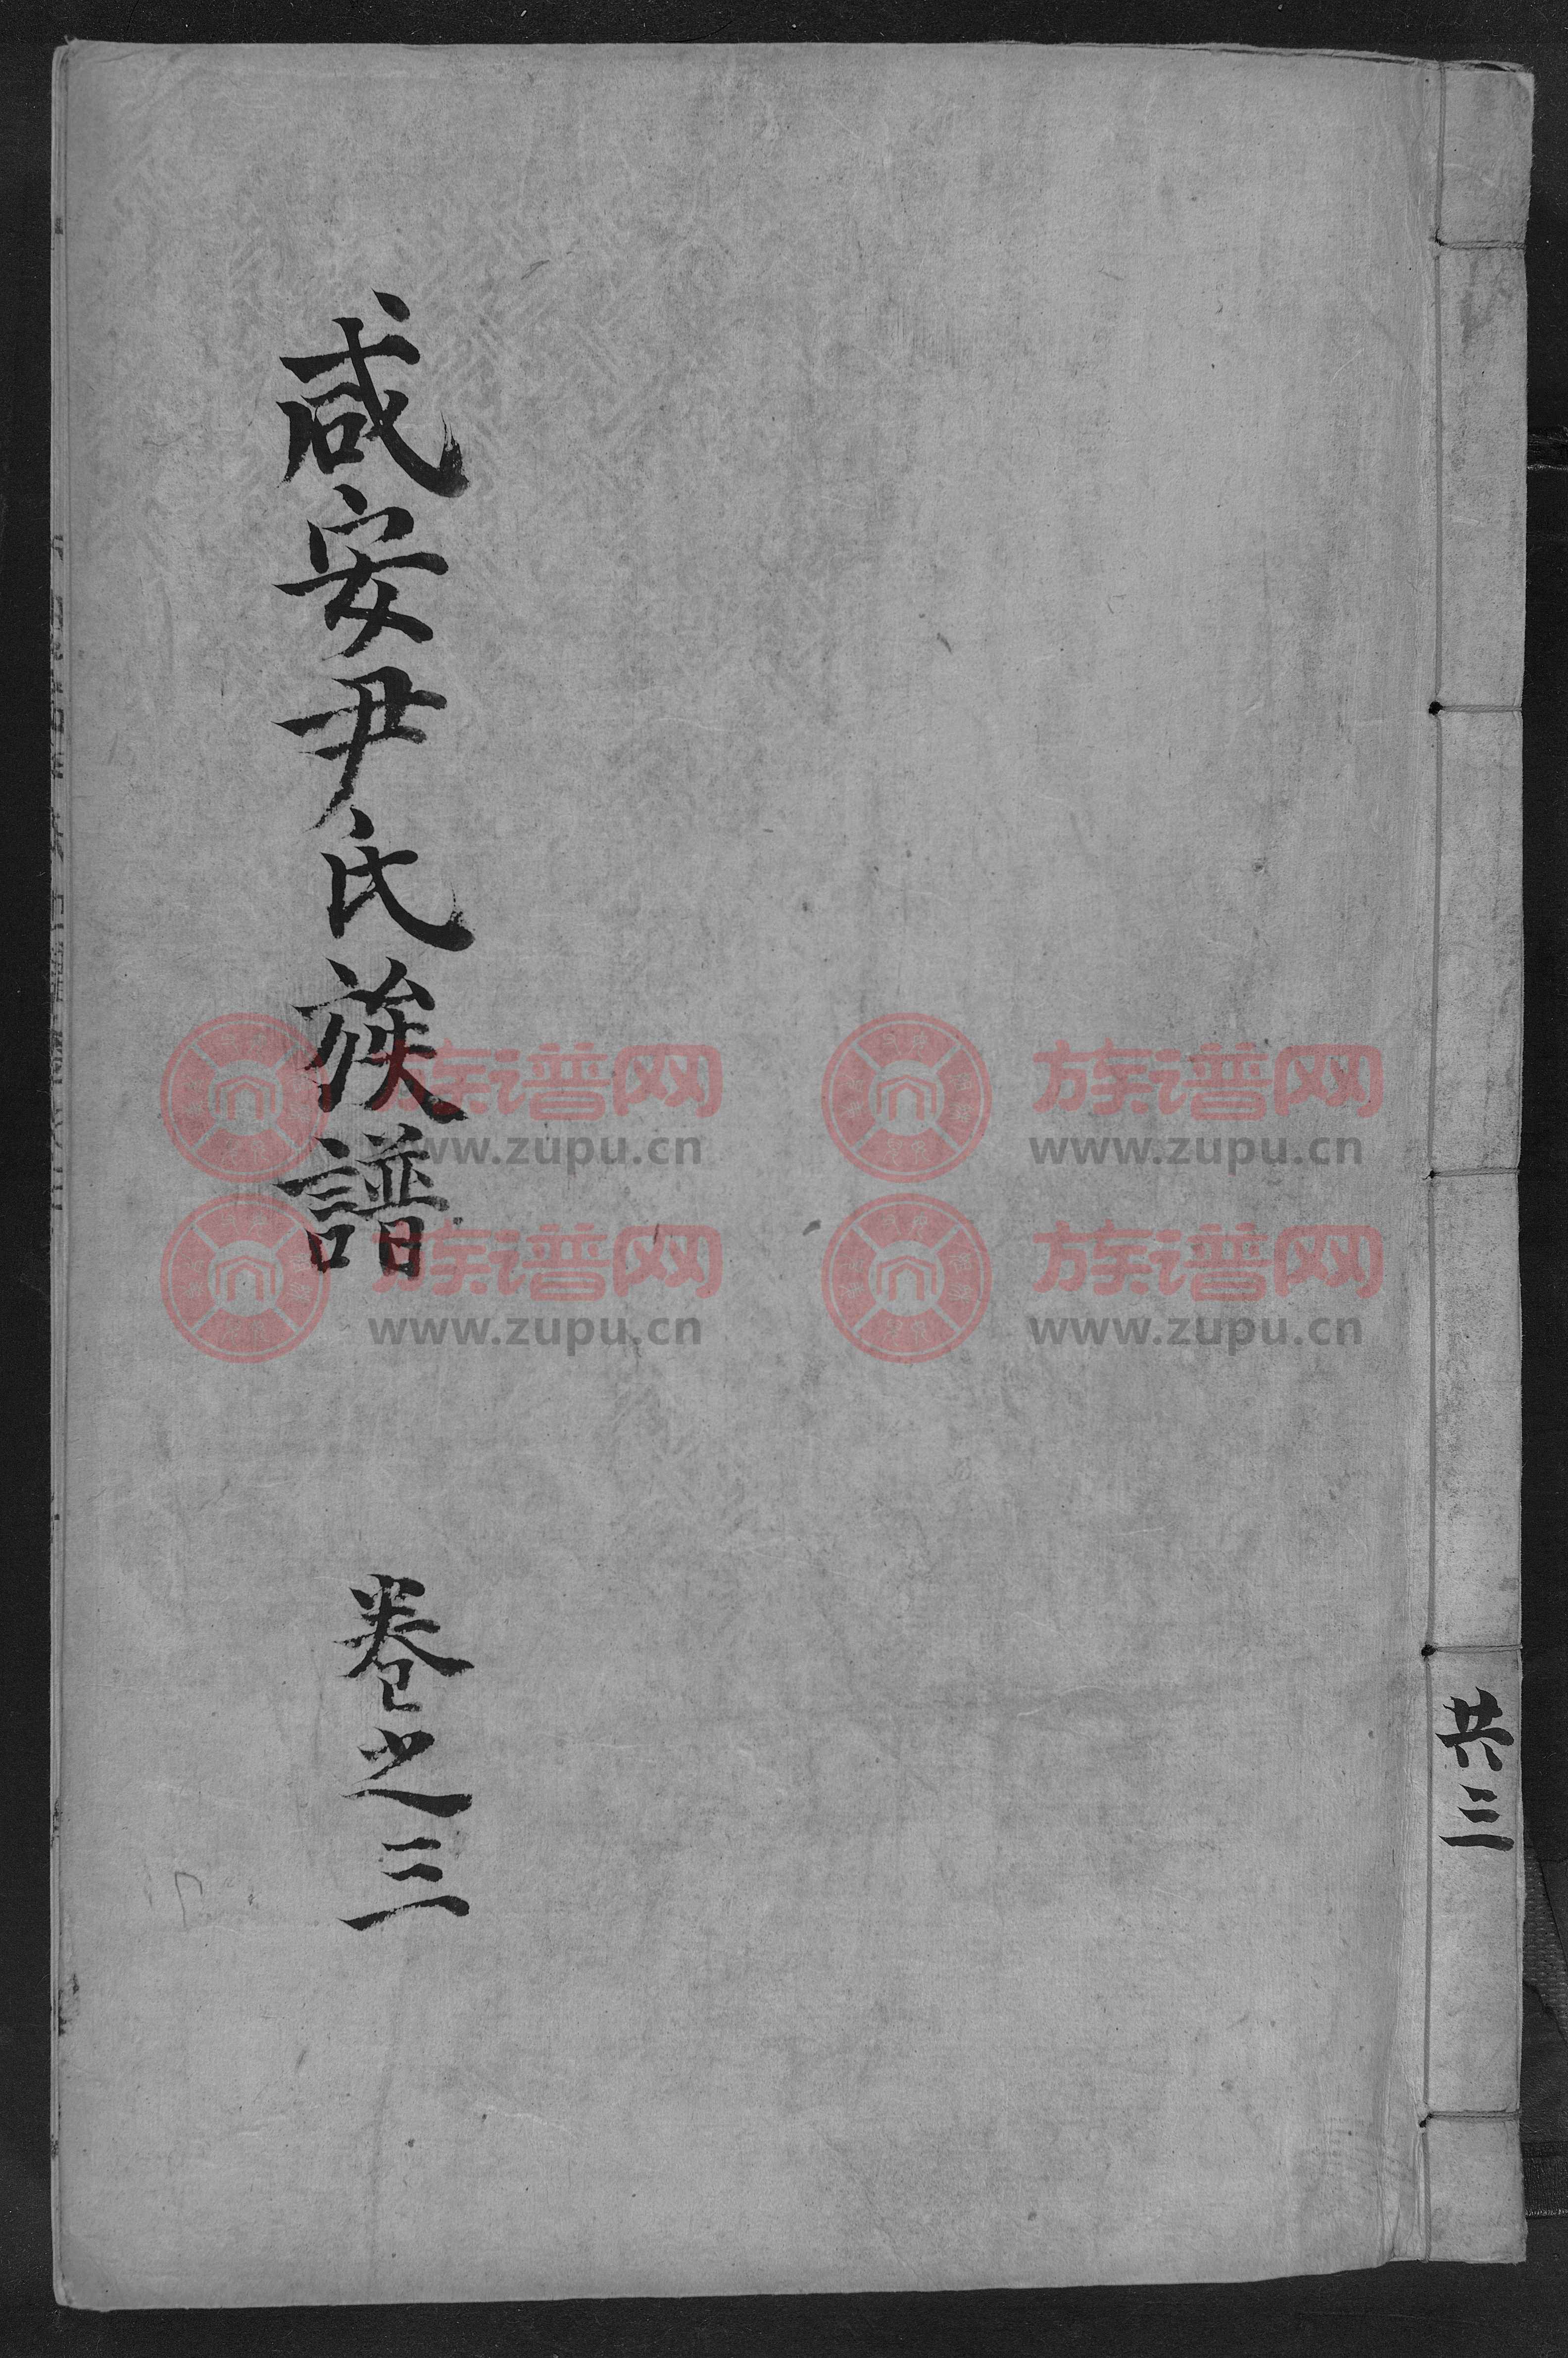 咸安尹氏族譜
卷之三
共三
族谱网
www.zupu.cn
族谱网
www.zupu.cn
族谱网
www.zupu.cn
族谱网
www.zupu.cn